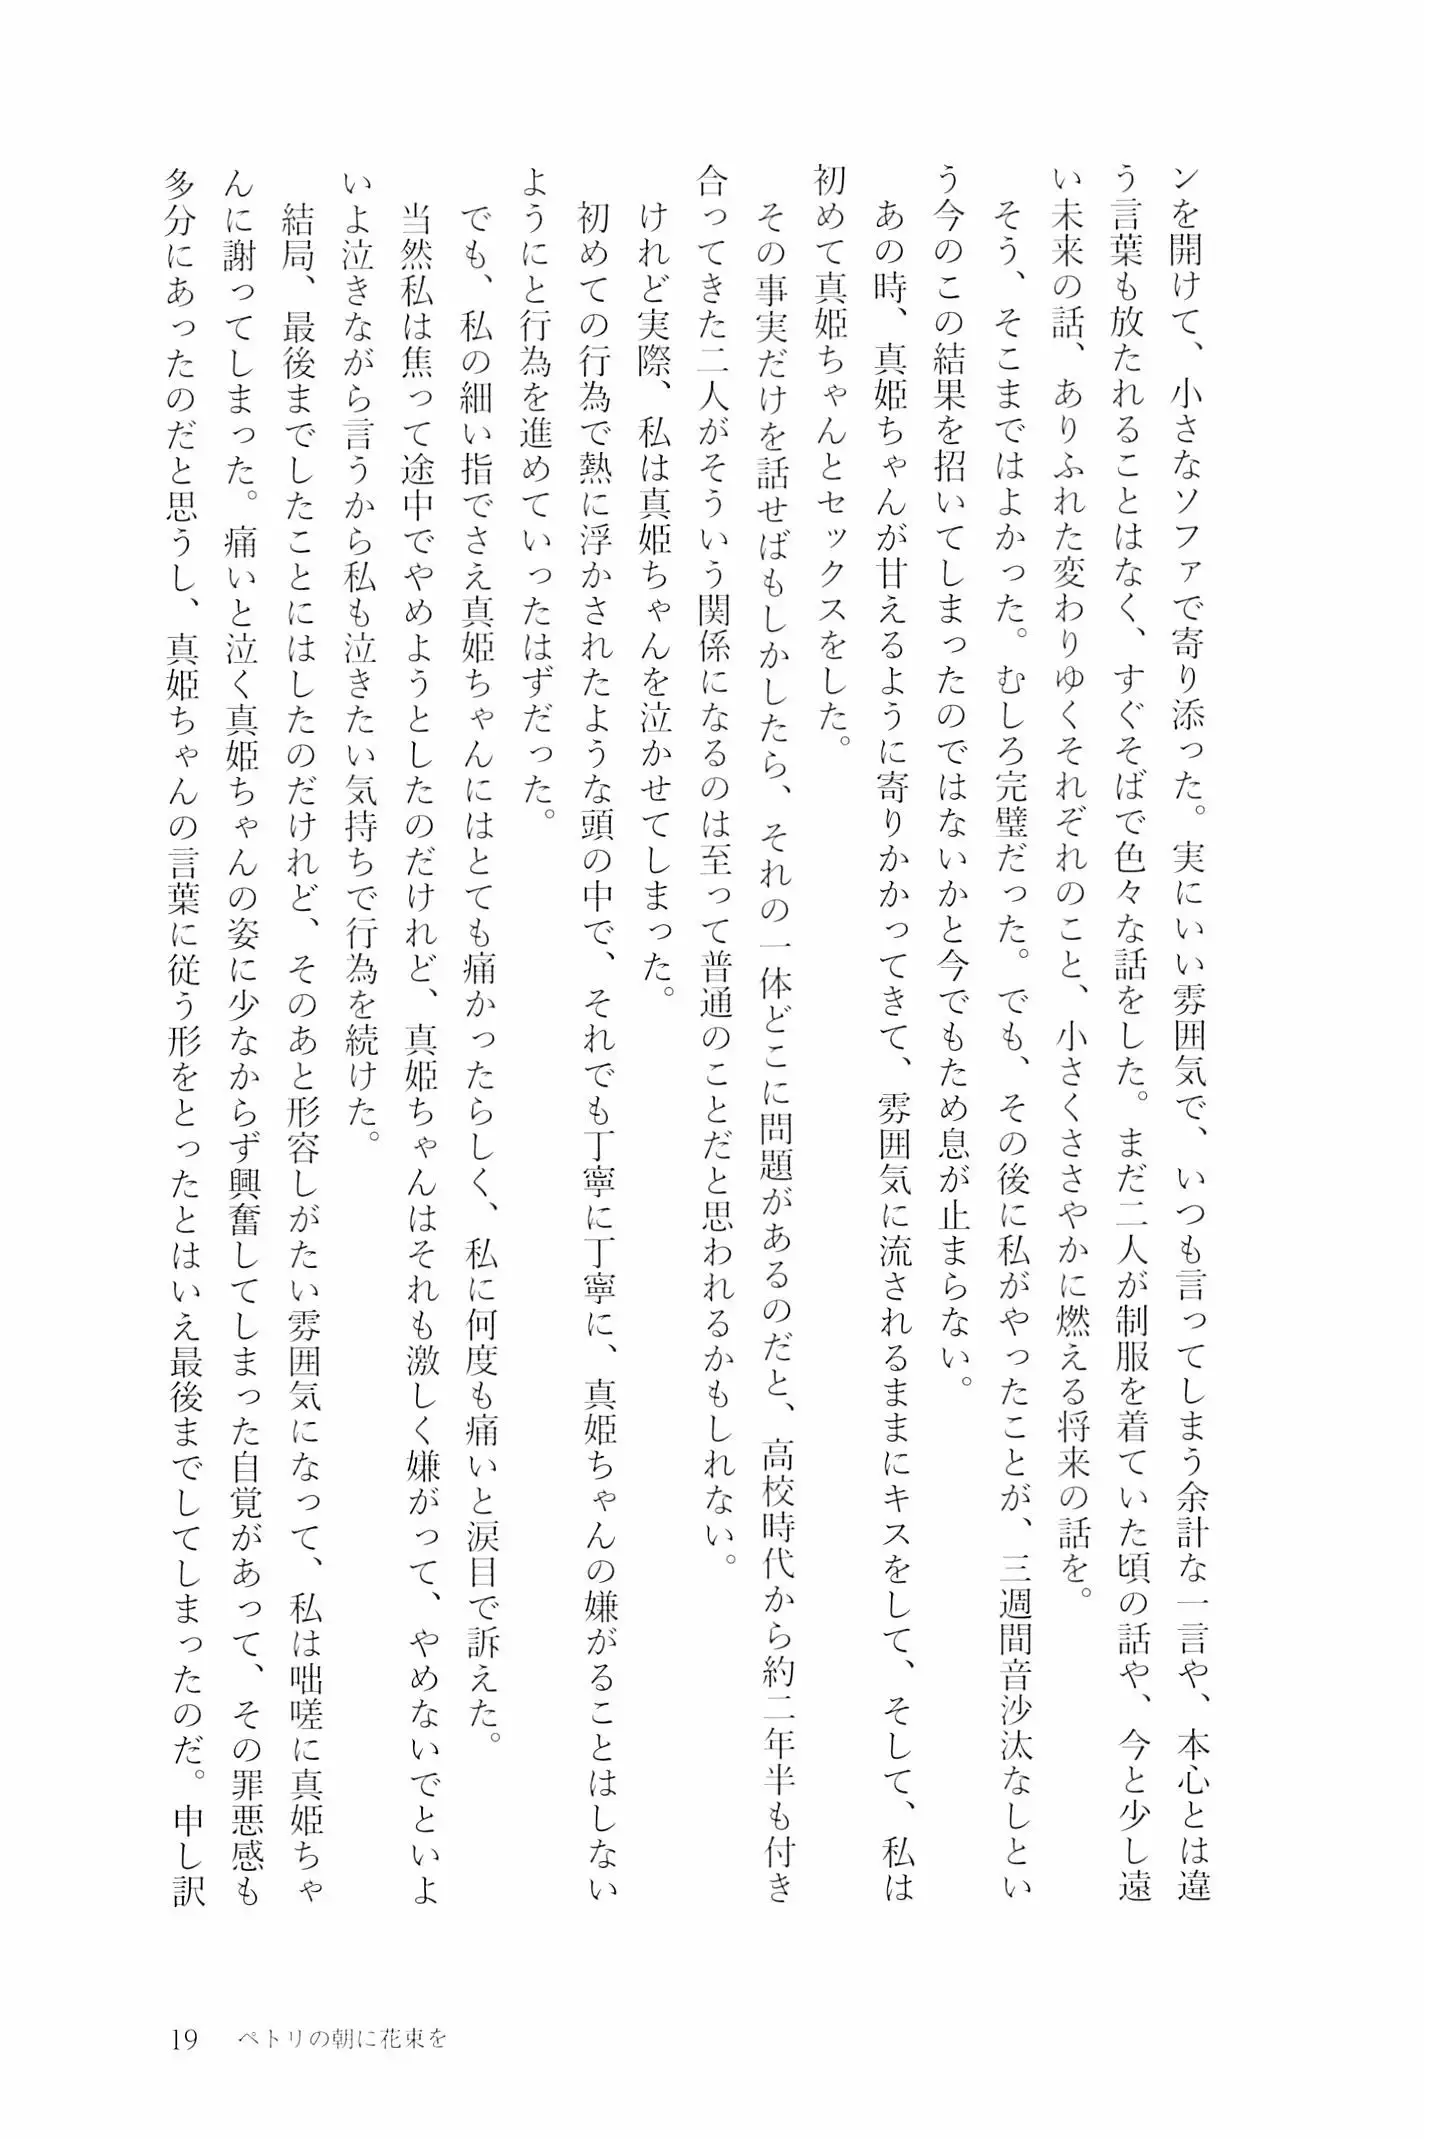 ンを開けて、小さなソファで寄り添った。実にいい雰囲気で、いつも言ってしまう余計な一言や、本心とは違
う言葉も放たれることはなく、すぐそばで色々な話をした。まだ二人が制服を着ていた頃の話や、今と少し遠
い未来の話、ありふれた変わりゆくそれぞれのこと、小さくささやかに燃える将来の話を。
そう、そこまではよかった。むしろ完璧だった。でも、その後に私がやったことが、三週間音沙汰なしとい
う今のこの結果を招いてしまったのではないかと今でもため息が止まらない。
あの時、真姫ちゃんが甘えるように寄りかかってきて、雰囲気に流されるままにキスをして、そして、私は
初めて真姫ちゃんとセックスをした。
その事実だけを話せばもしかしたら、それの一体どこに問題があるのだと、高校時代から約二年半も付き
合ってきた二人がそういう関係になるのは至って普通のことだと思われるかもしれない。
けれど実際、私は真姫ちゃんを泣かせてしまった。
初めての行為で熱に浮かされたような頭の中で、それでも丁寧に丁寧に、真姫ちゃんの嫌がることはしない
ようにと行為を進めていったはずだった。
でも、私の細い指でさえ真姫ちゃんにはとても痛かったらしく、私に何度も痛いと涙目で訴えた。
当然私は焦って途中でやめようとしたのだけれど、真姫ちゃんはそれも激しく嫌がって、やめないでといよ
いよ泣きながら言うから私も泣きたい気持ちで行為を続けた。
結局、最後までしたことにはしたのだけれど、そのあと形容しがたい雰囲気になって、私は咄嗟に真姫ちゃ
んに謝ってしまった。痛いと泣く真姫ちゃんの姿に少なからず興奮してしまった自覚があって、その罪悪感も
多分にあったのだと思うし、真姫ちゃんの言葉に従う形をとったとはいえ最後までしてしまったのだ。申し訳
19 ペトリの朝に花束を